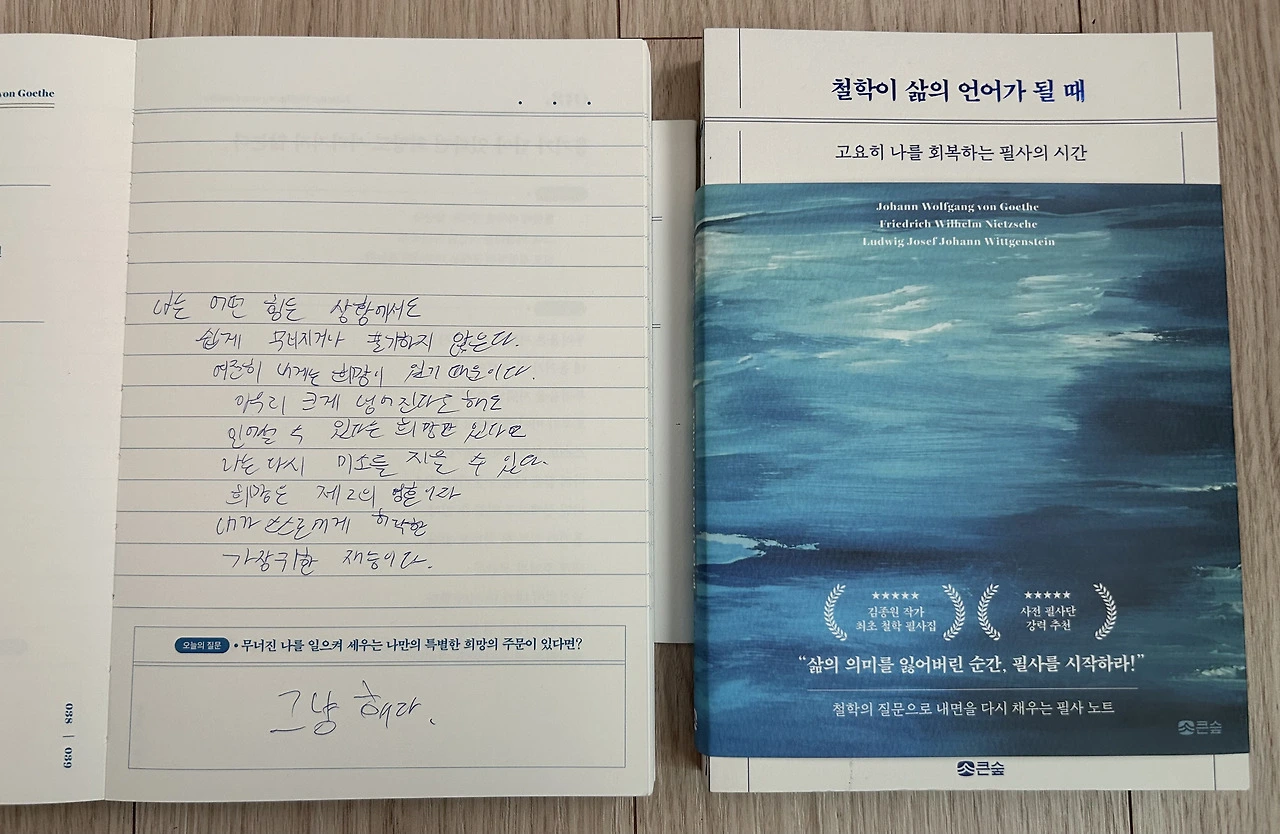 von Goethe
나는 어떤 힘든 상황에서도
쉽게 무너지거나 포기하지 않는다.
여전히 내게는 희망이 있기 때문이다.
아무리 크게 넘어진다고 해도
일어설 수 있다는 희망만 있다면
나는 다시 미소를 지을 수 있다.
희망은 제2의 영혼이라
내가 스스로에게 허락한
가장 귀한 재능이다.
오늘의 질문 • 무너진 나를 일으켜 세우는 나만의 특별한 희망의 주문이 있다면?
그냥 해라.
038 | 039
철학이 삶의 언어가 될 때
고요히 나를 회복하는 필사의 시간
Johann Wolfgang von Goethe
Friedrich Wilhelm Nietzsche
Ludwig Josef Johann Wittgenstein
★★★★★
김종원 작가
최초 철학 필사집
★★★★★
사전 필사단
강력 추천
“삶의 의미를 잃어버린 순간, 필사를 시작하라!”
철학의 질문으로 내면을 다시 채우는 필사 노트
큰숲
큰숲